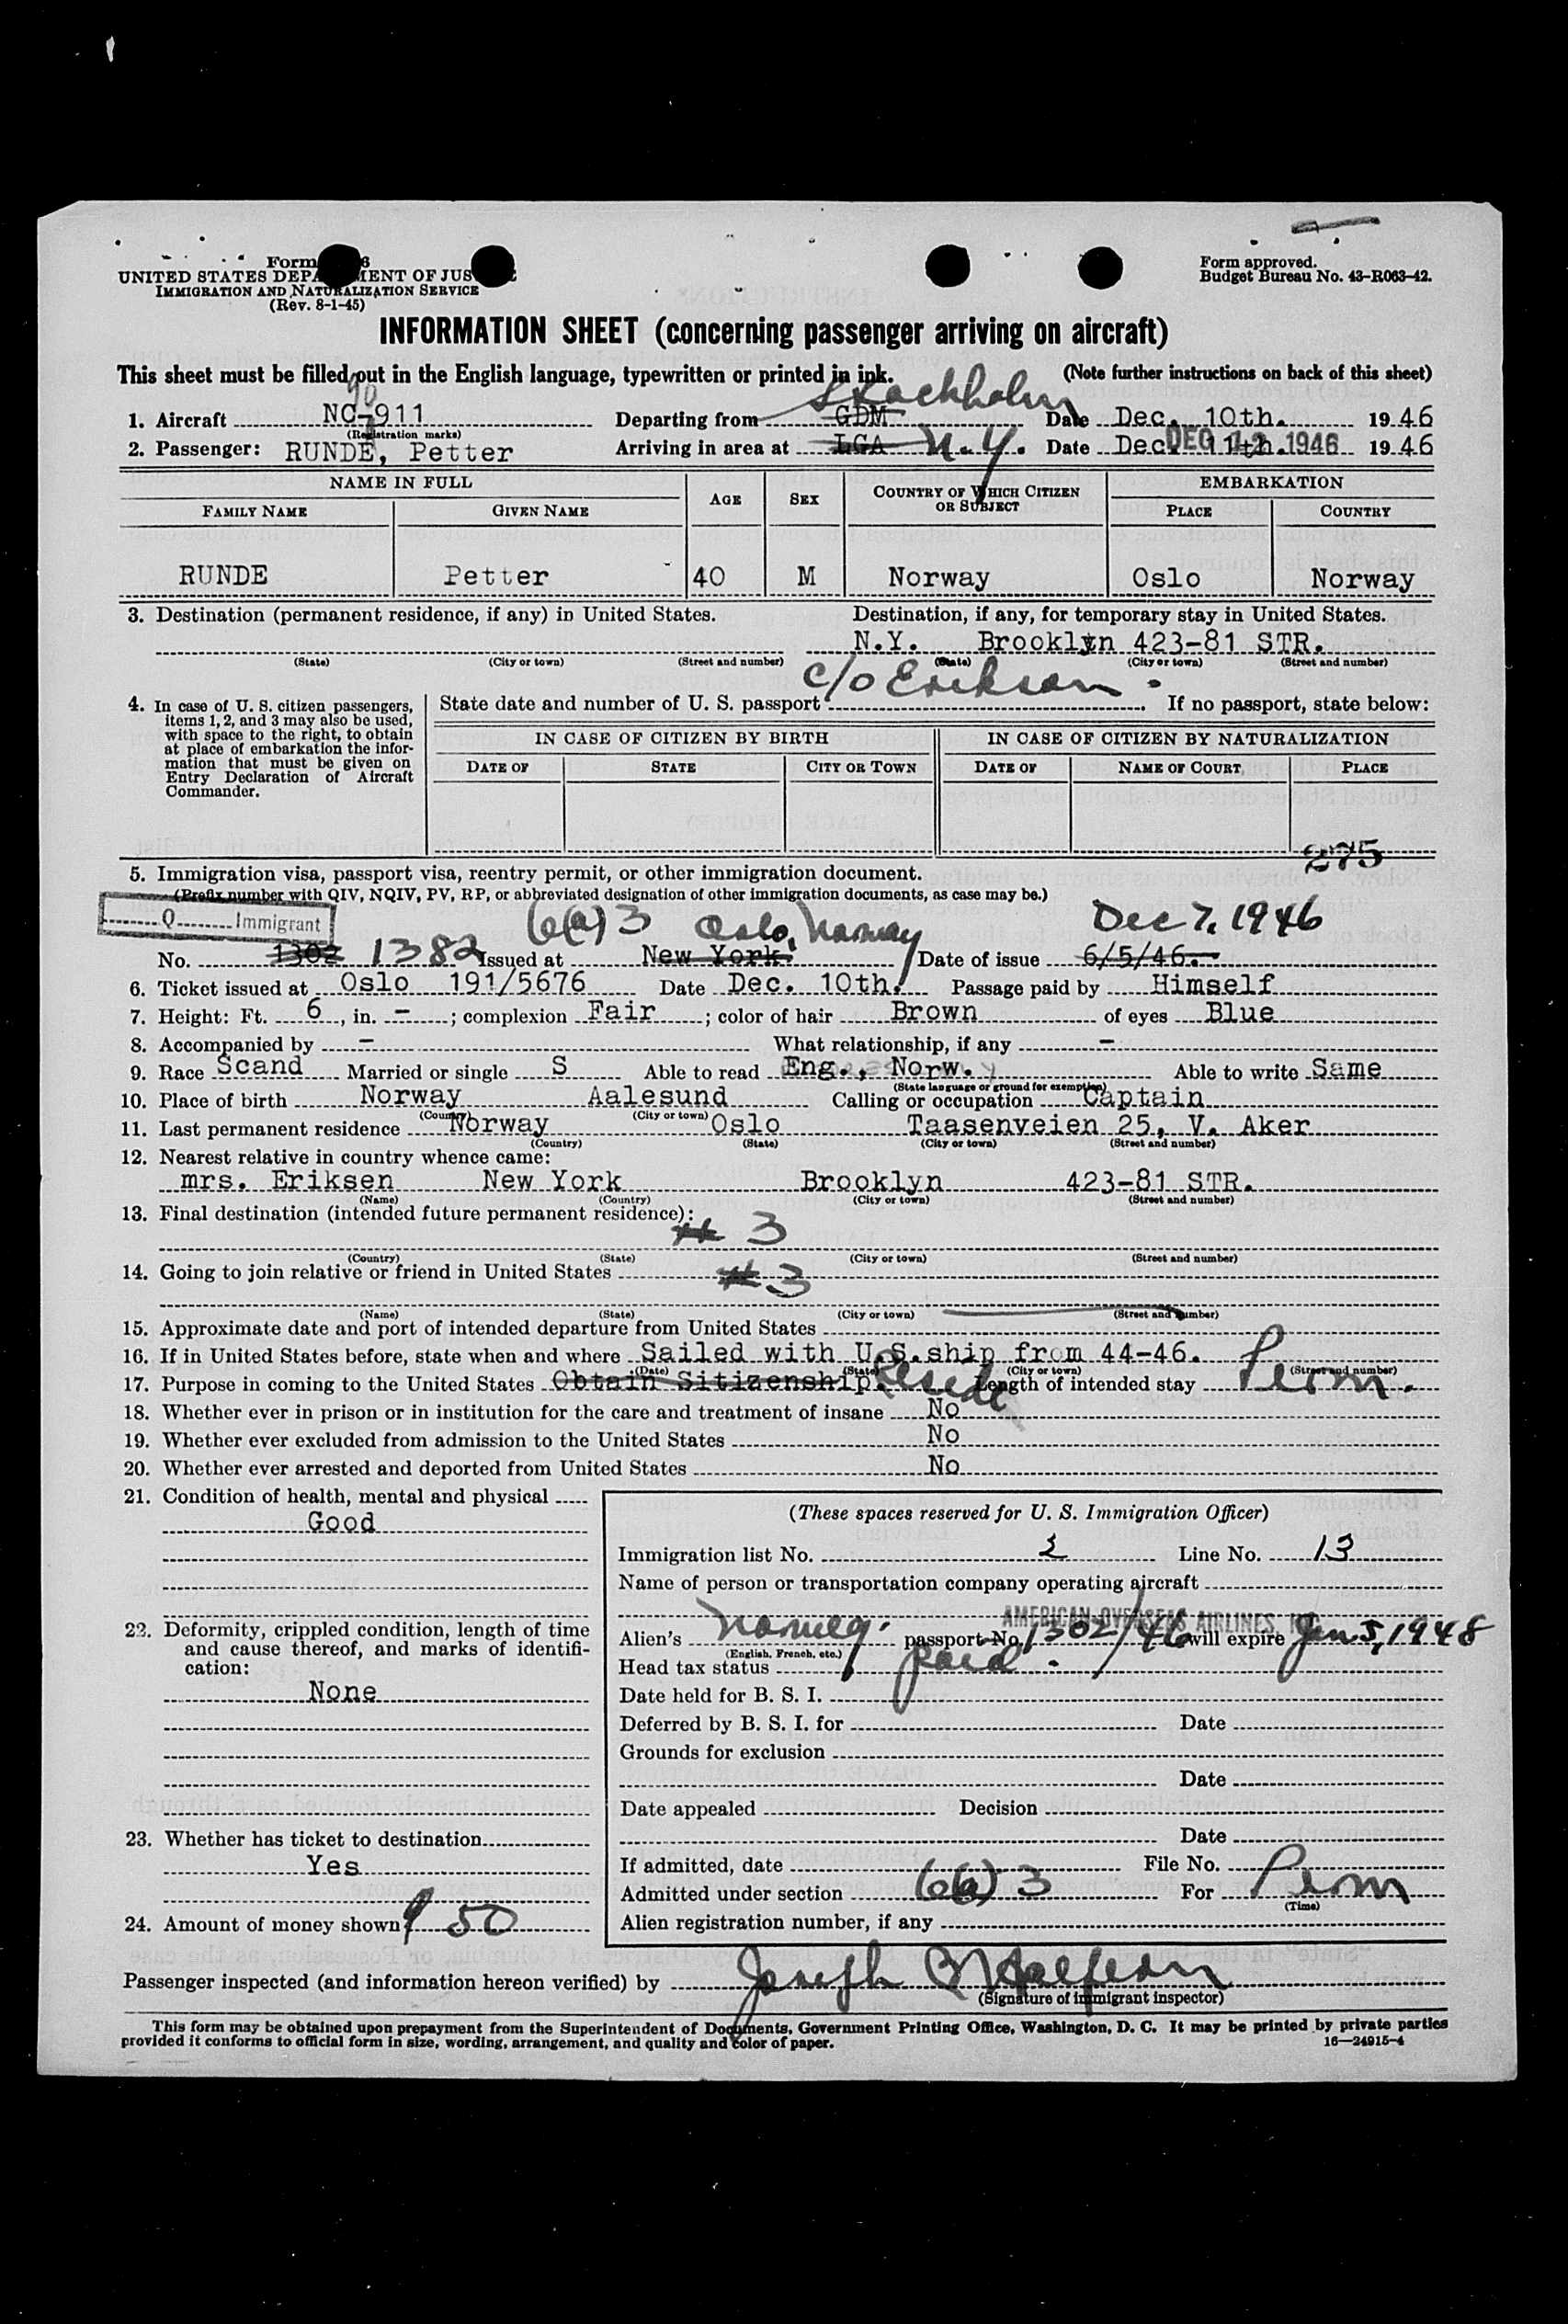 Form 6
UNITED STATES DEPARTMENT OF JUS
IMMIGRATION AND NATURALIZATION SERVICE
(Rev. 8-1-45)
Form approved.
Budget Bureau No. 43-R063-42.
INFORMATION SHEET (concerning passenger arriving on aircraft)
This sheet must be filled out in the English language, typewritten or printed in ink. (Note further instructions on back of this sheet)
Stockholm
1. Aircraft NC-911 Departing from GDM Date Dec. 10th. 1946
(Registration marks)
2. Passenger: RUNDE, Petter Arriving in area at LGA N.Y. Date Dec. 11th. DEC 12 1946 1946
NAME IN FULL AGE SEX COUNTRY OF WHICH CITIZEN OR SUBJECT EMBARKATION
FAMILY NAME GIVEN NAME PLACE COUNTRY
RUNDE Petter 40 M Norway Oslo Norway
3. Destination (permanent residence, if any) in United States. Destination, if any, for temporary stay in United States.
N.Y. Brooklyn 423-81 STR.
(State) (City or town) (Street and number) (State) (City or town) (Street and number)
c/o Erikson
4. In case of U. S. citizen passengers, items 1, 2, and 3 may also be used, with space to the right, to obtain at place of embarkation the information that must be given on Entry Declaration of Aircraft Commander.
State date and number of U. S. passport If no passport, state below:
IN CASE OF CITIZEN BY BIRTH IN CASE OF CITIZEN BY NATURALIZATION
DATE OF STATE CITY OR TOWN DATE OF NAME OF COURT PLACE
275
5. Immigration visa, passport visa, reentry permit, or other immigration document.
(Prefix number with QIV, NQIV, PV, RP, or abbreviated designation of other immigration documents, as case may be.)
Q Immigrant
6(a)3 Oslo, Norway Dec 7, 1946
No. 1302 1382 Issued at New York. Date of issue 6/5/46.
6. Ticket issued at Oslo 191/5676 Date Dec. 10th. Passage paid by Himself
7. Height: Ft. 6, in. - ; complexion Fair ; color of hair Brown of eyes Blue
8. Accompanied by - What relationship, if any -
9. Race Scand Married or single S Able to read Eng., Norw. Able to write Same
(State language or ground for exemption)
10. Place of birth Norway Aalesund Calling or occupation Captain
(Country) (City or town)
11. Last permanent residence Norway Oslo Taasenveien 25, V. Aker
(Country) (State) (City or town) (Street and number)
12. Nearest relative in country whence came:
mrs. Eriksen New York Brooklyn 423-81 STR.
(Name) (Country) (City or town) (Street and number)
13. Final destination (intended future permanent residence):
# 3
(Country) (State) (City or town) (Street and number)
14. Going to join relative or friend in United States # 3
(Name) (State) (City or town) (Street and number)
15. Approximate date and port of intended departure from United States
16. If in United States before, state when and where Sailed with U.S.ship from 44-46.
(Date) (State) (City or town) (Street and number)
17. Purpose in coming to the United States Obtain Sitizenship. Reside Length of intended stay Perm.
18. Whether ever in prison or in institution for the care and treatment of insane No
19. Whether ever excluded from admission to the United States No
20. Whether ever arrested and deported from United States No
21. Condition of health, mental and physical
Good
22. Deformity, crippled condition, length of time and cause thereof, and marks of identification:
None
23. Whether has ticket to destination
Yes
24. Amount of money shown $ 50
(These spaces reserved for U. S. Immigration Officer)
Immigration list No. 2 Line No. 13
Name of person or transportation company operating aircraft
AMERICAN OVERSEAS AIRLINES, INC.
Alien's Norweg. passport No. 1302/46 will expire Jan 5, 1948
(English, French, etc.)
Head tax status paid.
Date held for B. S. I.
Deferred by B. S. I. for Date
Grounds for exclusion
Date
Date appealed Decision
Date
If admitted, date File No.
Admitted under section 6(a)3 For Perm
(Time)
Alien registration number, if any
Passenger inspected (and information hereon verified) by Joseph Halpern
(Signature of immigrant inspector)
This form may be obtained upon prepayment from the Superintendent of Documents, Government Printing Office, Washington, D. C. It may be printed by private parties
provided it conforms to official form in size, wording, arrangement, and quality and color of paper. 16—24915-4